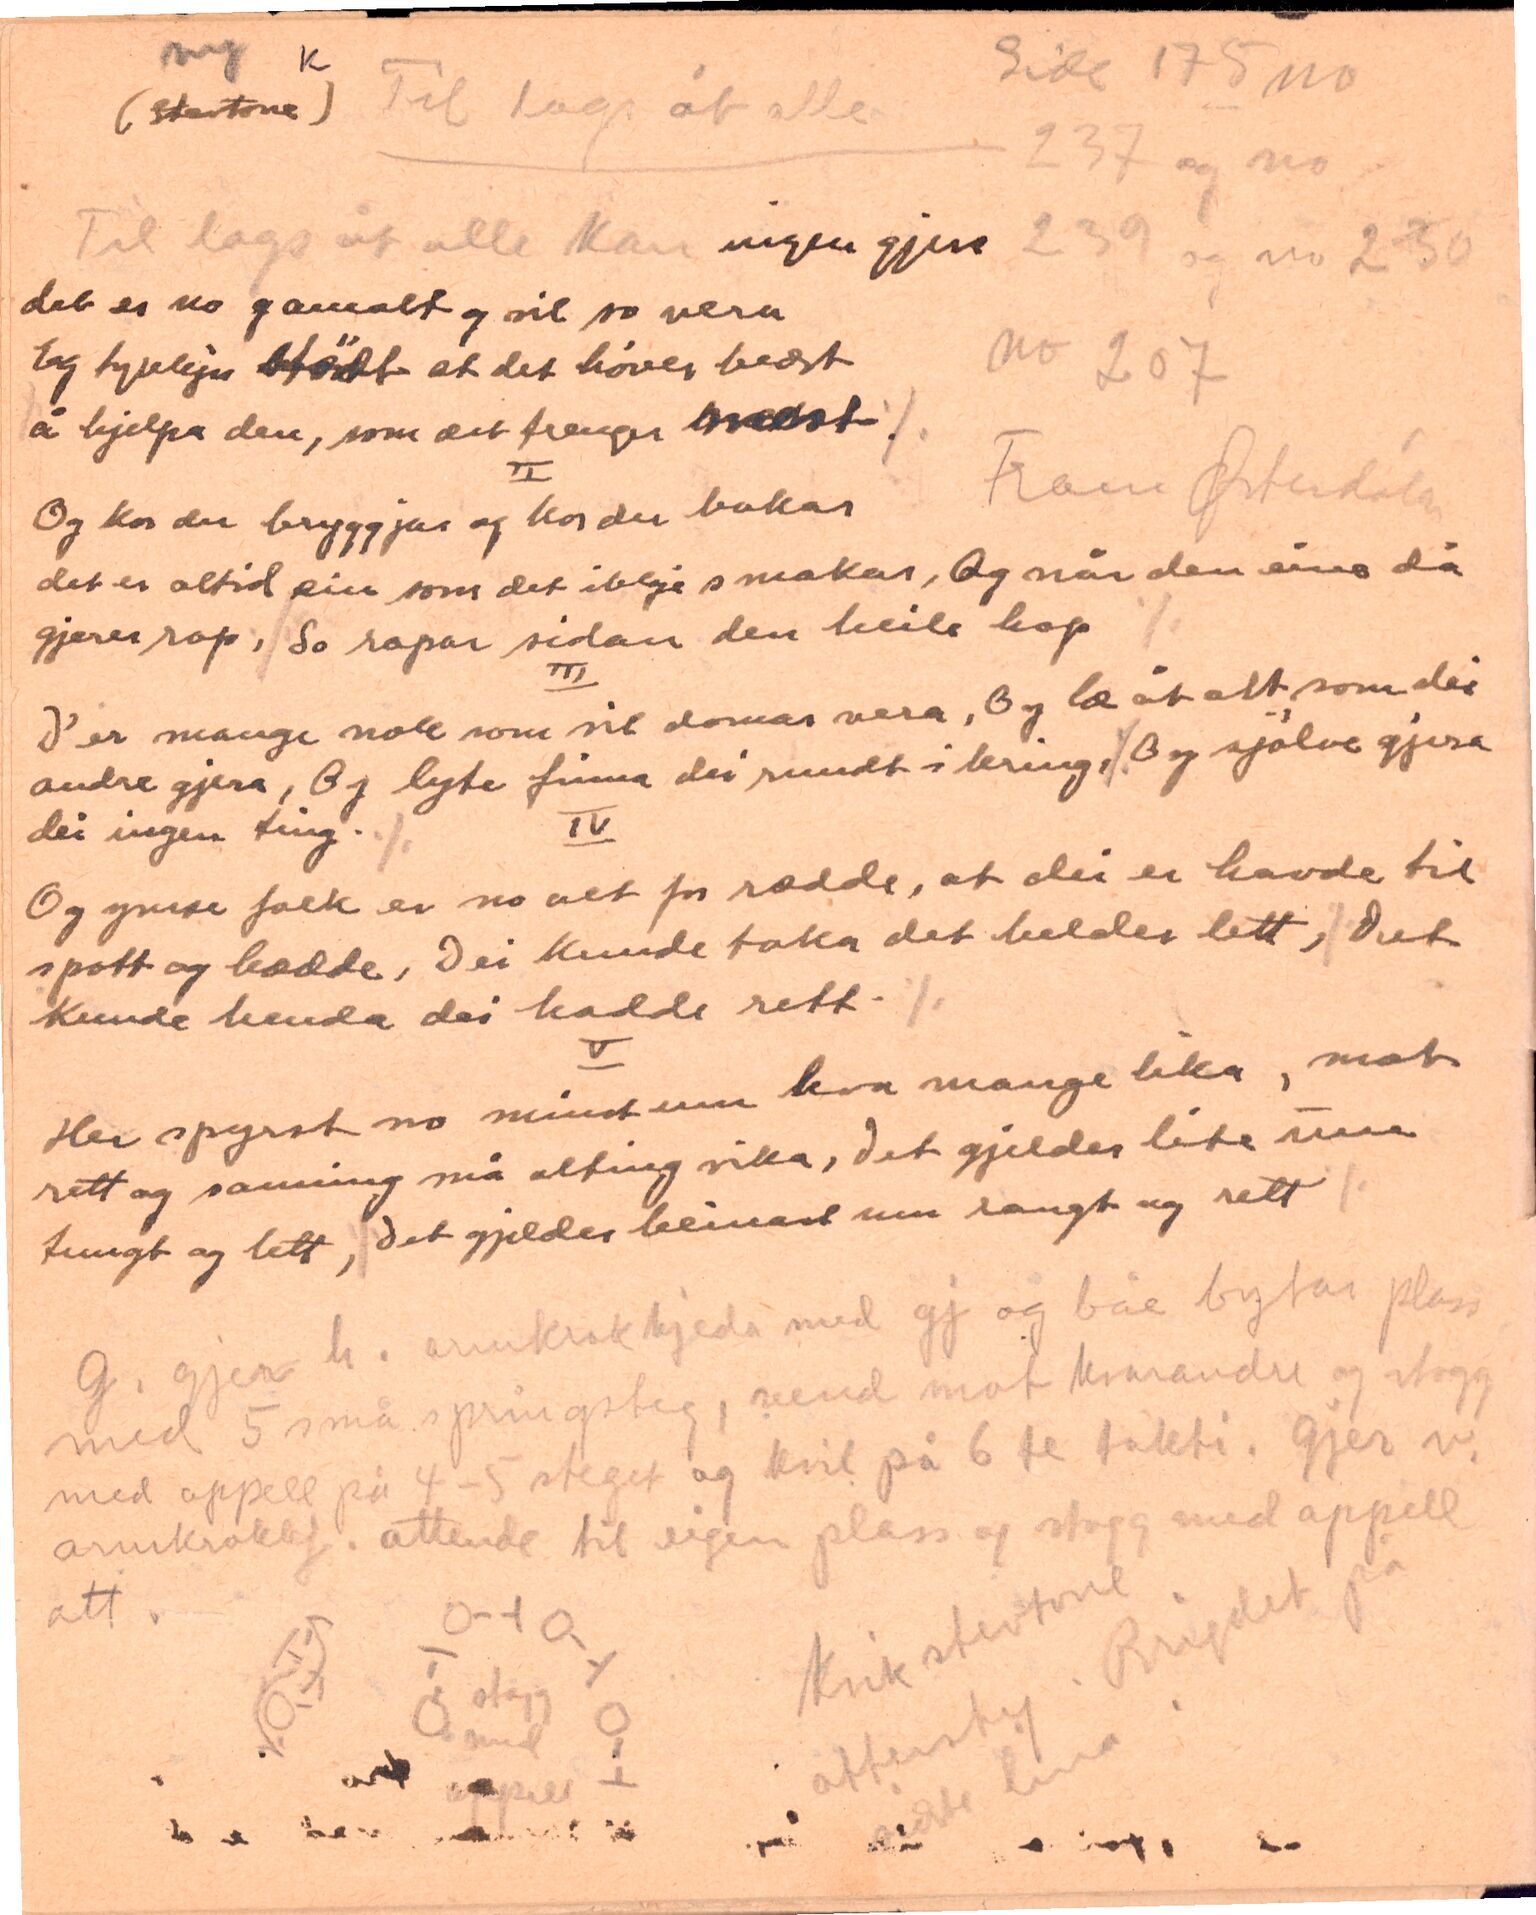 ny K
(Stevtone) Til lags åt alle
Side 175 no
237 og no
239 og no 250
no 207
Fram Østerdalen
Til lags åt alle kan ingen gjera
det er no gamalt og vil so vera
Eg tykkjer at det høver bedst
å hjelpa den, som det trenger mest ./.
II
Og kor du bryggjar og kor du bakar
det er altid ein som det ikkje smakar, Og når den eine då
gjerer rop, So ropar sidan den heile hop ./.
III
D'er mange nok som vil domar vera, Og læ åt alt, som dei
andre gjera, Og lyte finna dei rundt i kring, Og sjølve gjera
dei ingen ting. ./.
IV
Og ymse folk er no alt for rædde, at dei er havde til
spott og hædde, Dei kunde taka det helder lett, Det
kunde henda dei hadde rett. ./.
V
Her spyrst no mindst um kva mange lika, mot
rett og sanning må alting vika, Det gjelder lite um
tungt og lett, Det gjelder beinast um rangt og rett ./.
G. gjer h. armkrokkjeda med gj og båe bytar plass
med 5 små springsteg, vend mot kvarandre og stogg
med appell på 4-5 steget og kvil på 6 te takti. Gjer v.
armkrokkj. attende til eigen plass og stogg med appell
att.
stogg
med
appell
Kvik stevtone
attersteg. Brigdet på
sidste lina